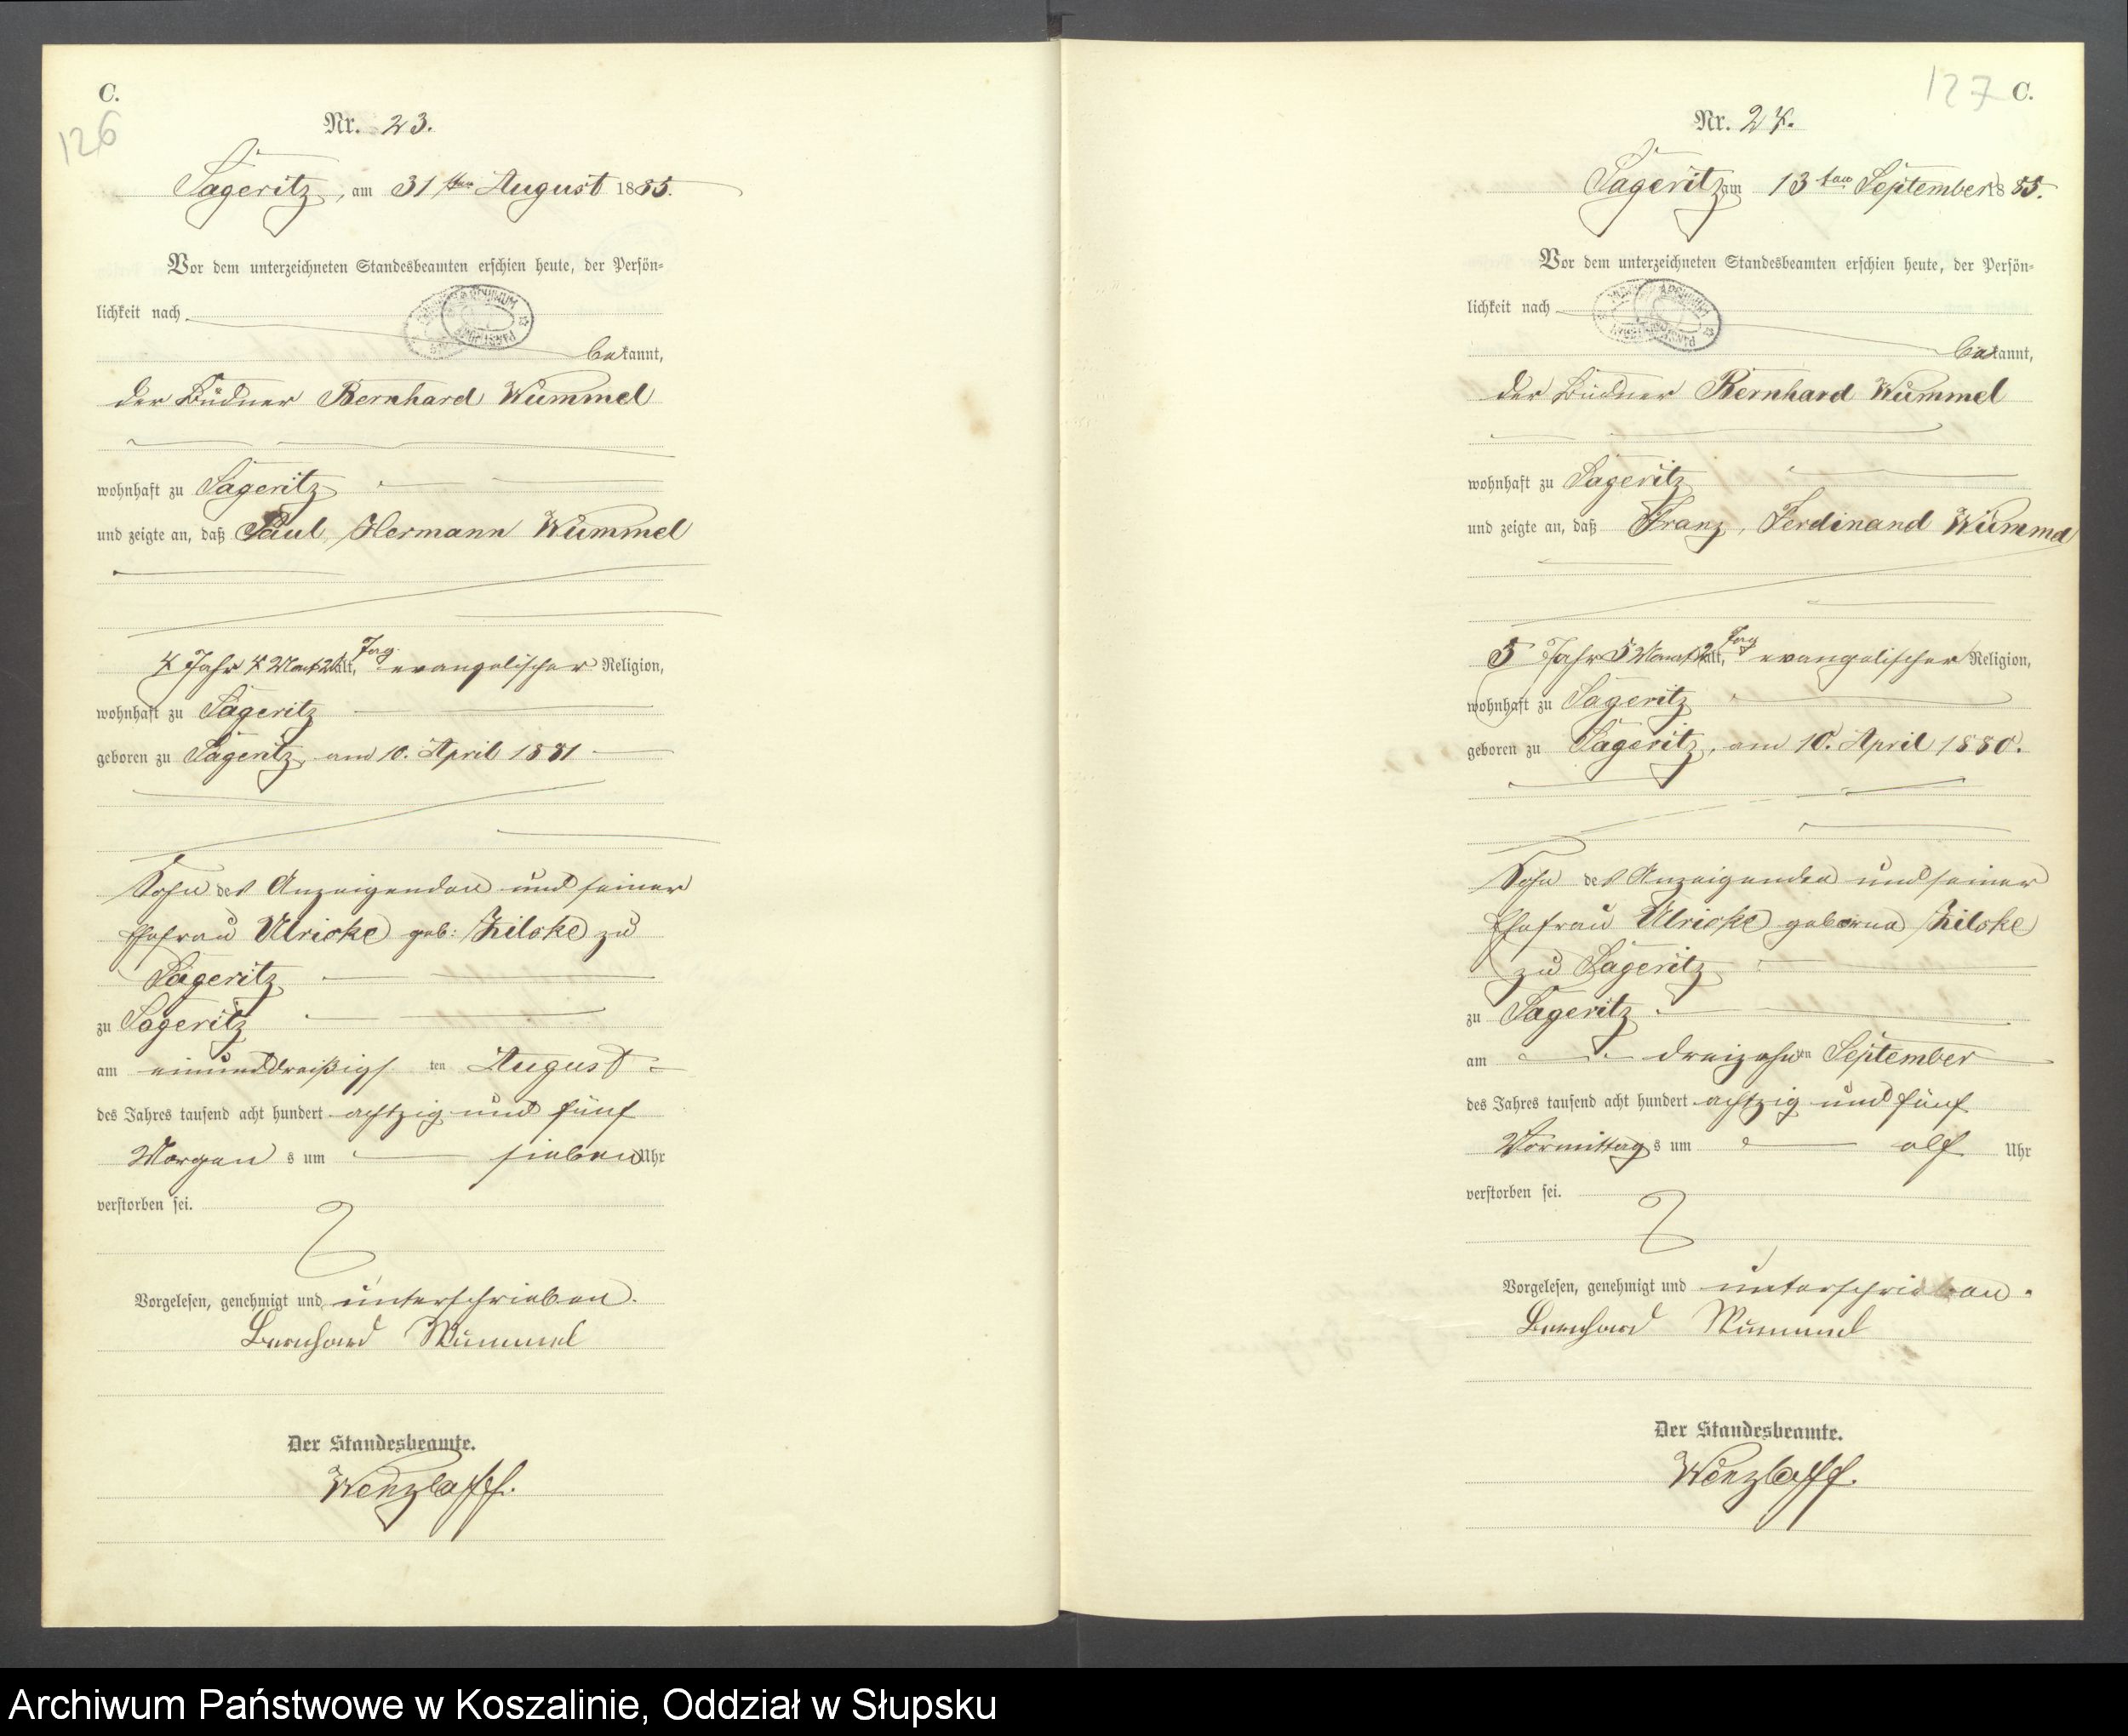 C.
126
Nr. 23.
Sageritz, am 31ten August 1885.
Vor dem unterzeichneten Standesbeamten erschien heute, der Persön-
lichkeit nach
bekannt,
der Büdner Bernhard Wümmel
wohnhaft zu Sageritz
und zeigte an, daß Paul, Hermann Wümmel
4 Jahr 4 Monat 21 alt, Tag evangelischer Religion,
wohnhaft zu Sageritz
geboren zu Sageritz, am 10. April 1881
Sohn des Anzeigenden und seiner
Ehefrau Ulricke geb: Zilske zu
Sageritz
zu Sageritz
am einunddreißigsten August
des Jahres tausend acht hundert achtzig und fünf
Morgens um sieben Uhr
verstorben sei.
Vorgelesen, genehmigt und unterschrieben.
Bernhard Wümmel
Der Standesbeamte.
Wenzlaff.
127 C.
Nr. 24.
Sageritz am 13ten September 1885.
Vor dem unterzeichneten Standesbeamten erschien heute, der Persön-
lichkeit nach
bekannt,
der Büdner Bernhard Wümmel
wohnhaft zu Sageritz
und zeigte an, daß Franz, Ferdinand Wümmel
5 Jahr 5 Monat 2 alt, Tag evangelischer Religion,
wohnhaft zu Sageritz
geboren zu Sageritz, am 10. April 1880.
Sohn des Anzeigenden und seiner
Ehefrau Ulricke geborne Zilske
zu Sageritz
zu Sageritz
am dreizehnten September
des Jahres tausend acht hundert achtzig und fünf
Vormittags um elf Uhr
verstorben sei.
Vorgelesen, genehmigt und unterschrieben.
Bernhard Wümmel
Der Standesbeamte.
Wenzlaff.
Archiwum Państwowe w Koszalinie, Oddział w Słupsku